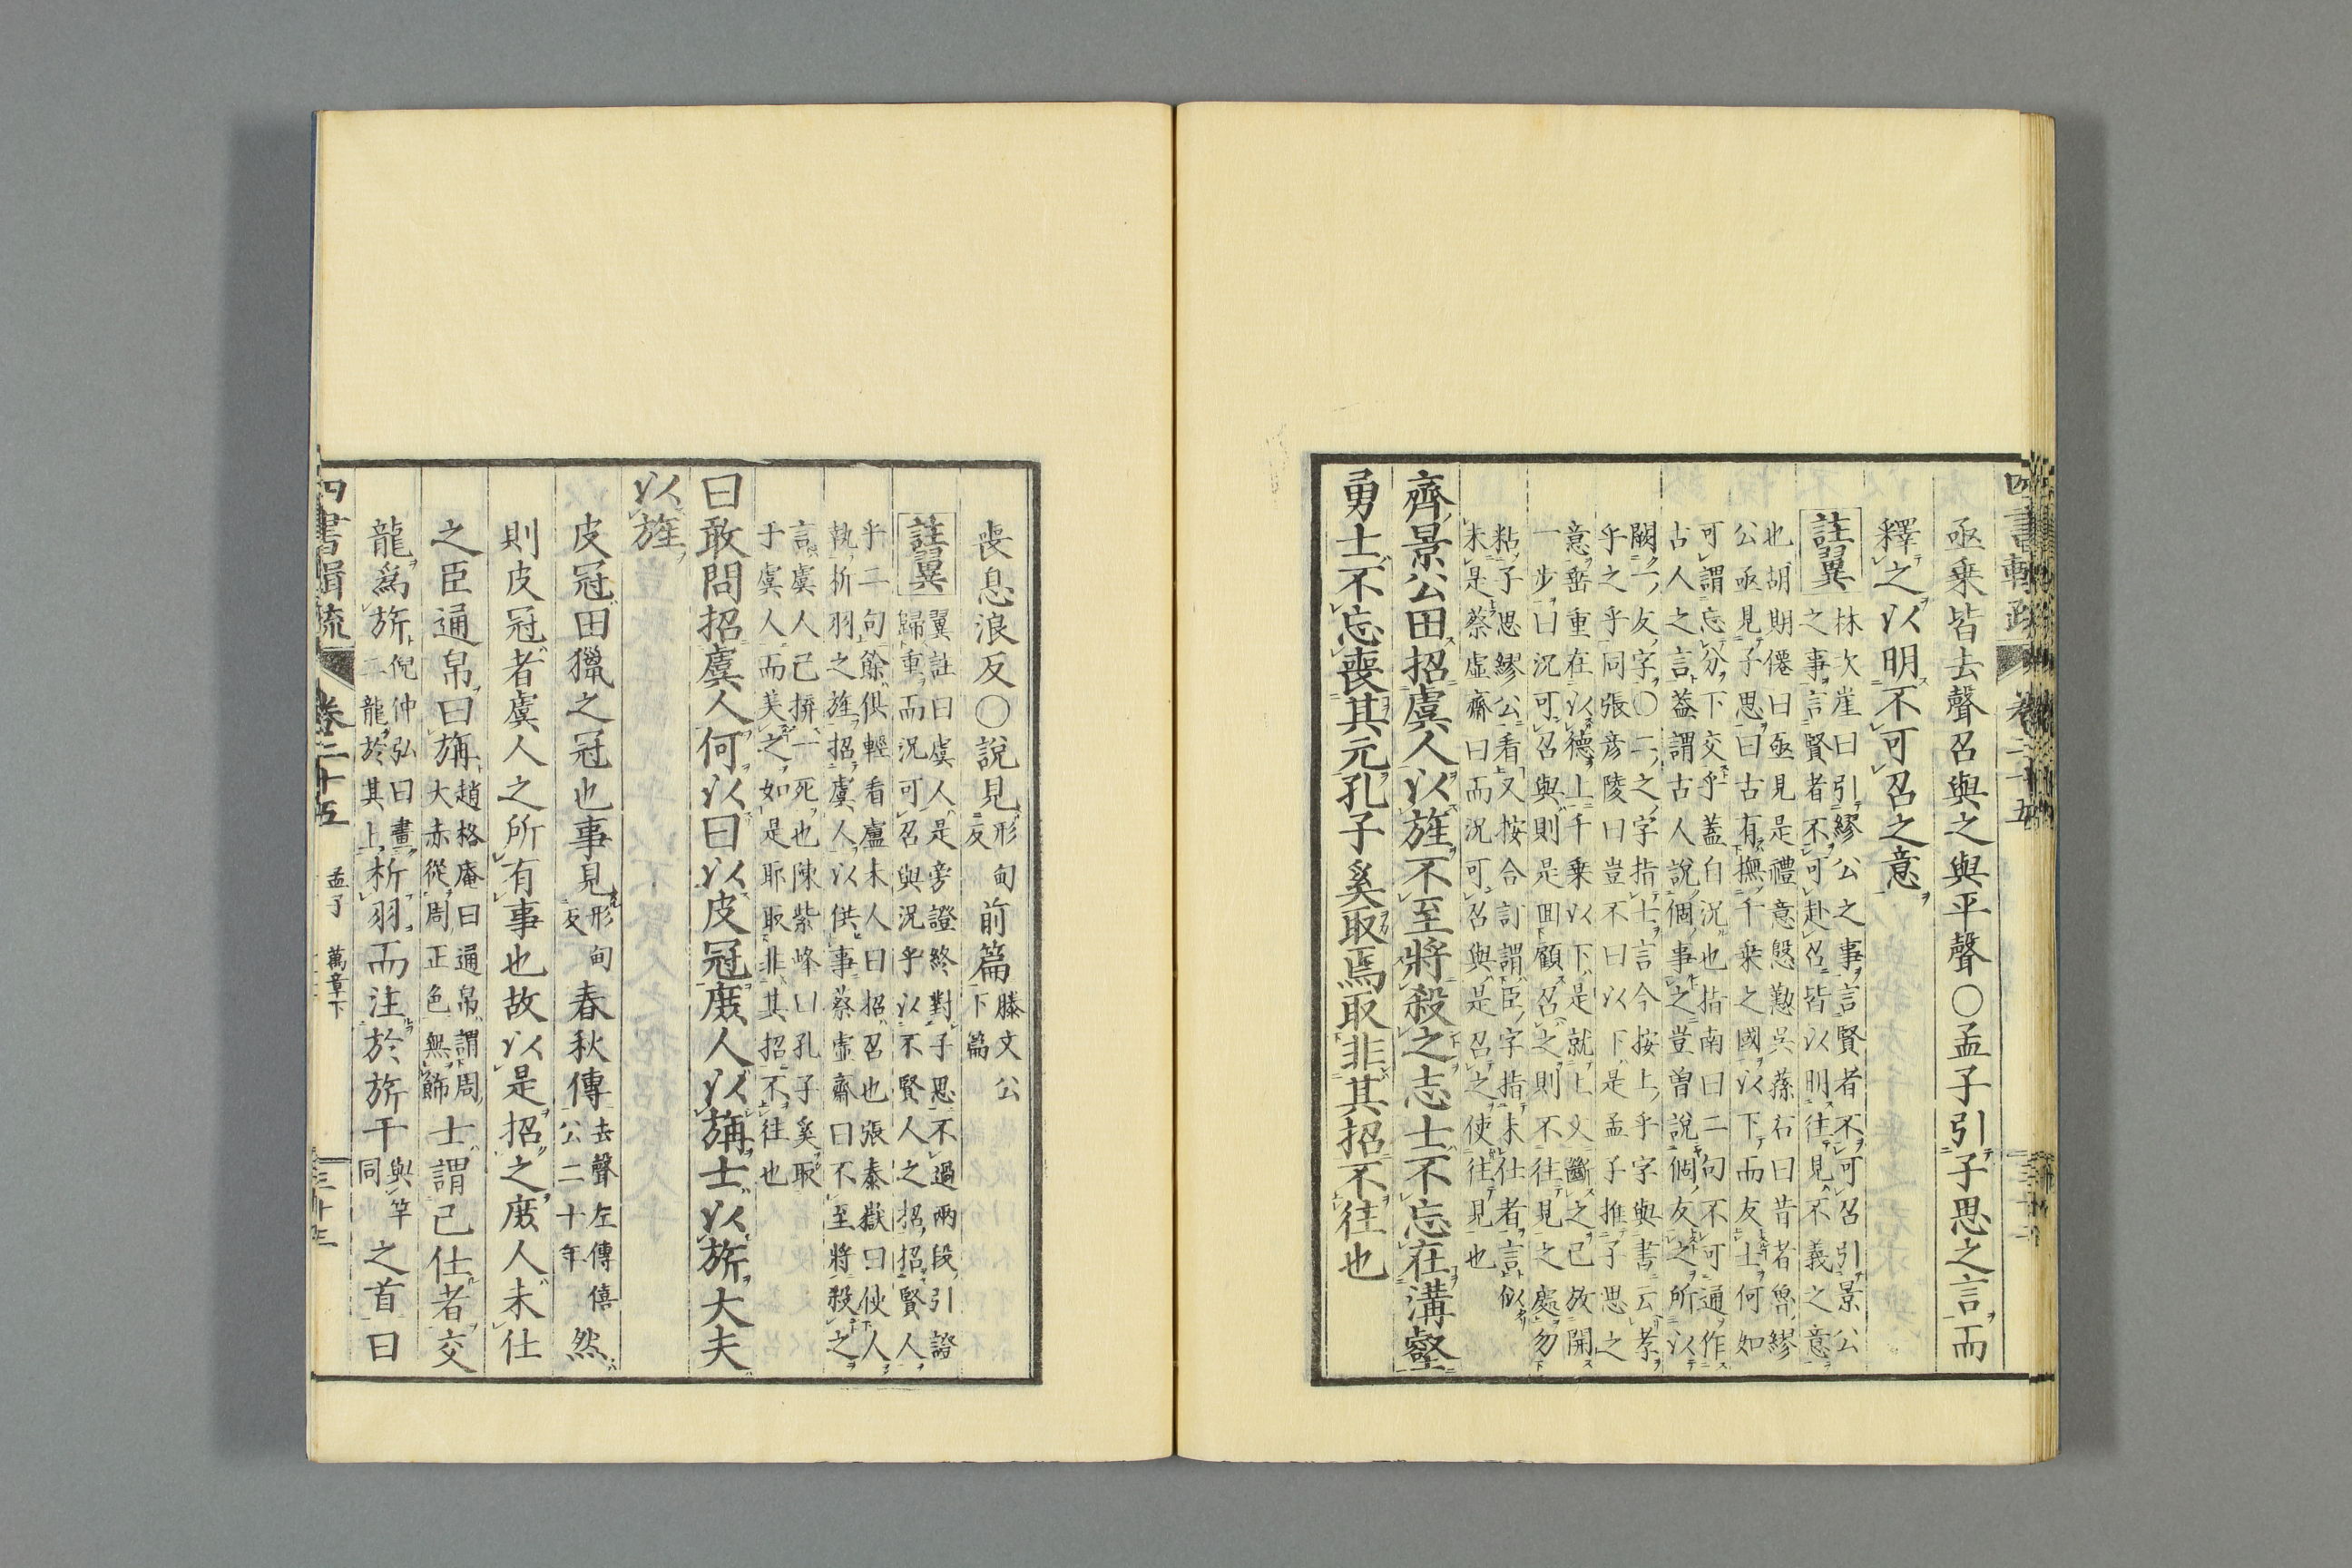 亟乗皆去聲召與之與平聲○孟子引子思之言而
釋之以明不可召之意
註翼
林次崖曰引繆公之事言賢者不可召引景公
之事言賢者不可赴召皆以明往見不義之意
也胡期僊曰亟見是禮意慇懃吳蓀右曰昔者魯繆
公亟見子思曰古有撫千乗之國以下而友士何如
可謂忘分下交乎蓋自況也指南曰二句不可通作
古人之言蓋謂古人說個事之豈曽說個友之所以
闕一友字○二之字指士言今按上乎字與書云孝
乎之乎同張彦陵曰豈不曰以下是孟子推子思之
意坙重在以德上千乗以下是就上文斷之已故開
一步曰況可召與則是囬顧召之則不往見之處勿
粘子思繆公看又按合訂謂臣字指未仕者言似
未是蔡虚齋曰而況可召與是召之使往見也
齊景公田招虞人以旌不至將殺之志士不忘在溝壑
勇士不忘喪其元孔子奚取焉取非其招不往也
四書輯疏 卷二十五
喪息浪反○說見形甸反前篇滕文公下篇
註翼
翼註曰虞人是旁證終對子思不過兩段引證
歸重而況可召與況乎以不賢人之招招賢人
乎二句餘俱輕看盧未人曰招召也張泰嶽曰使人
執析羽之旌招虞人以供事蔡虚齋曰不至將殺之
言虞人已拚一死也陳紫峰曰孔子奚取
于虞人而美之如是耶取非其招不往也
曰敢問招虞人何以曰以皮冠庻人以旃士以旂大夫
以旌
皮冠田獵之冠也事見形甸反春秋傳去聲左傳僖公二十年然
則皮冠者虞人之所有事也故以是招之庻人未仕
之臣通帛曰旃趙格庵曰通帛謂周大赤從周正色無飾士謂已仕者交
龍爲旂倪仲弘曰畫二龍於其上析羽而注於旂干與竿同之首曰
四書輯疏 卷二十五 孟子 萬章下 三十三